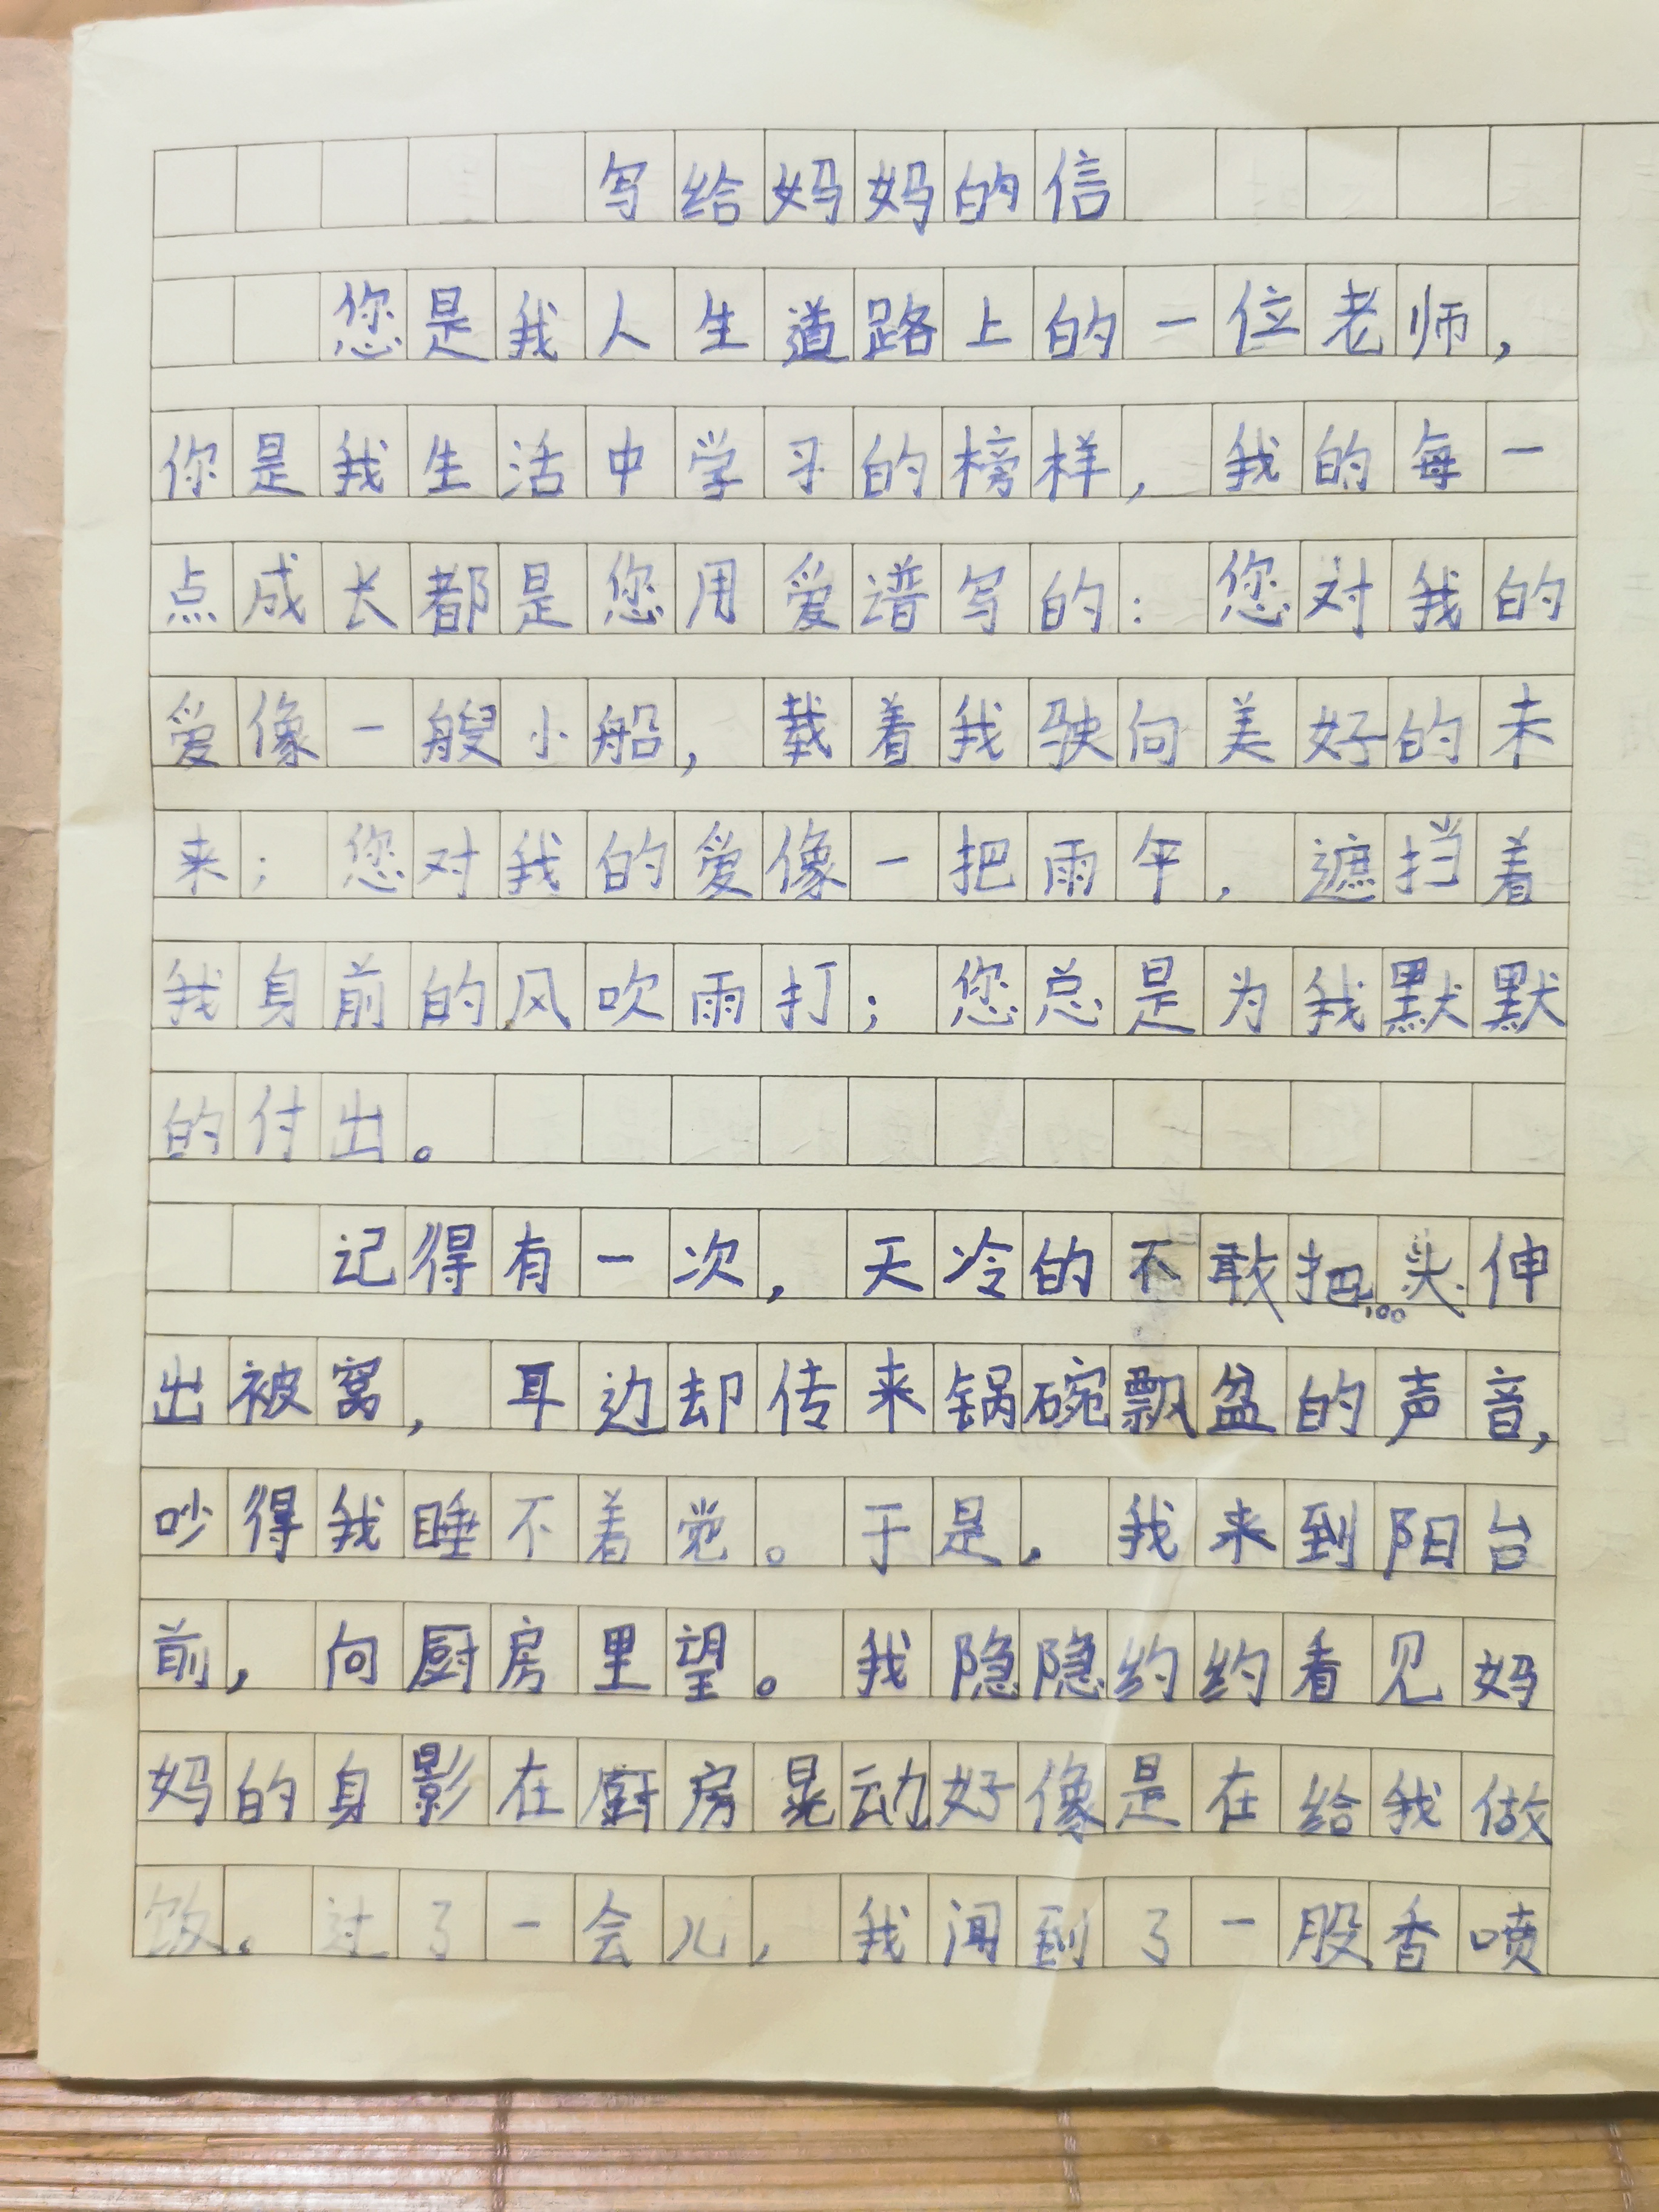 写给妈妈的信
您是我人生道路上的一位老师，
你是我生活中学习的榜样，我的每一
点成长都是您用爱谱写的：您对我的
爱像一艘小船，载着我驶向美好的未
来；您对我的爱像一把雨伞，遮挡着
我身前的风吹雨打；您总是为我默默
的付出。
记得有一次，天冷的不敢把头伸
出被窝，耳边却传来锅碗飘盆的声音，
吵得我睡不着觉。于是，我来到阳台
前，向厨房里望。我隐隐约约看见妈
妈的身影在厨房晃动好像是在给我做
饭。过了一会儿，我闻到了一股香喷